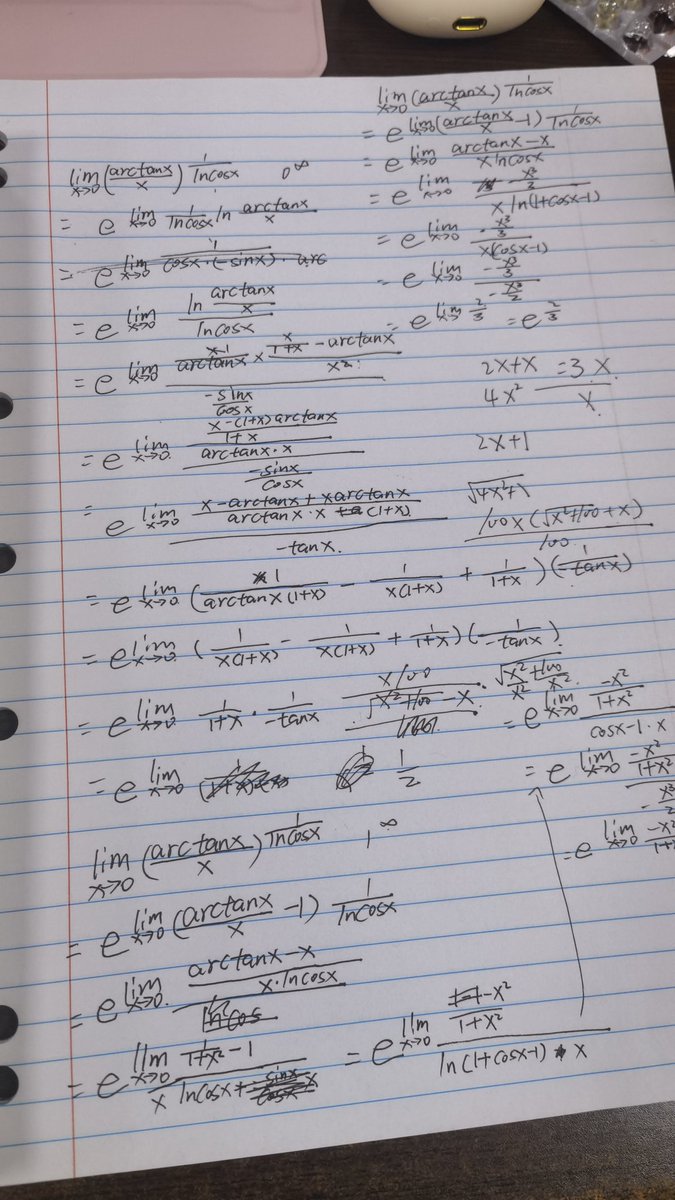 lim x→0 (arctanx/x)^(1/lncosx) 0^∞
= e^lim x→0 1/lncosx ln arctanx/x
= e^lim x→0 1/cosx·(-sinx)·arc
= e^lim x→0 (ln arctanx/x)/(lncosx)
= e^lim x→0 (x·1/arctanx × (x/(1+x) - arctanx)/x²)/(-sinx/cosx)
= e^lim x→0 (((x-(1+x)arctanx)/(1+x))/(arctanx·x))/(-sinx/cosx)
= e^lim x→0 ((x-arctanx+xarctanx)/(arctanx·x (1+x)))/(-tanx)
= e^lim x→0 (1/(arctanx(1+x)) - 1/(x(1+x)) + 1/(1+x))(1/-tanx)
= e^lim x→0 (1/(x(1+x)) - 1/(x(1+x)) + 1/(1+x))(1/-tanx)
= e^lim x→0 1/(1+x) · 1/-tanx
= e^lim x→0
lim x→0 (arctanx/x)^(1/lncosx) 1^∞
= e^lim x→0 (arctanx/x -1) 1/lncosx
= e^lim x→0 (arctanx-x)/(x·lncosx)
= e^lim x→0 (1/(1+x²) -1)/(lncosx+
= e^lim x→0 (-x²/(1+x²))/(ln(1+cosx-1) x)
= e^lim x→0 (-x²/(1+x²))/(cosx-1·x)
= e^lim x→0 (-x²/(1+x²))/(-x³/2)
= e^lim x→0 -x²/
lim x→0 (arctanx/x)^(1/lncosx)
= e^lim x→0 (arctanx/x -1) 1/lncosx
= e^lim x→0 (arctanx-x)/(xlncosx)
= e^lim x→0 (-x³/3)/(x ln(1+cosx-1))
= e^lim x→0 (-x³/3)/(x(cosx-1))
= e^lim x→0 (-x³/3)/(-x³/2)
= e^lim x→ 2/3 = e^2/3
2x+x = 3x
4x² x
2x+1
√4x²+1
100x(√x²+100+x)/100
x100/(√x²+100-x) · √x²+100
x² x²
1/2